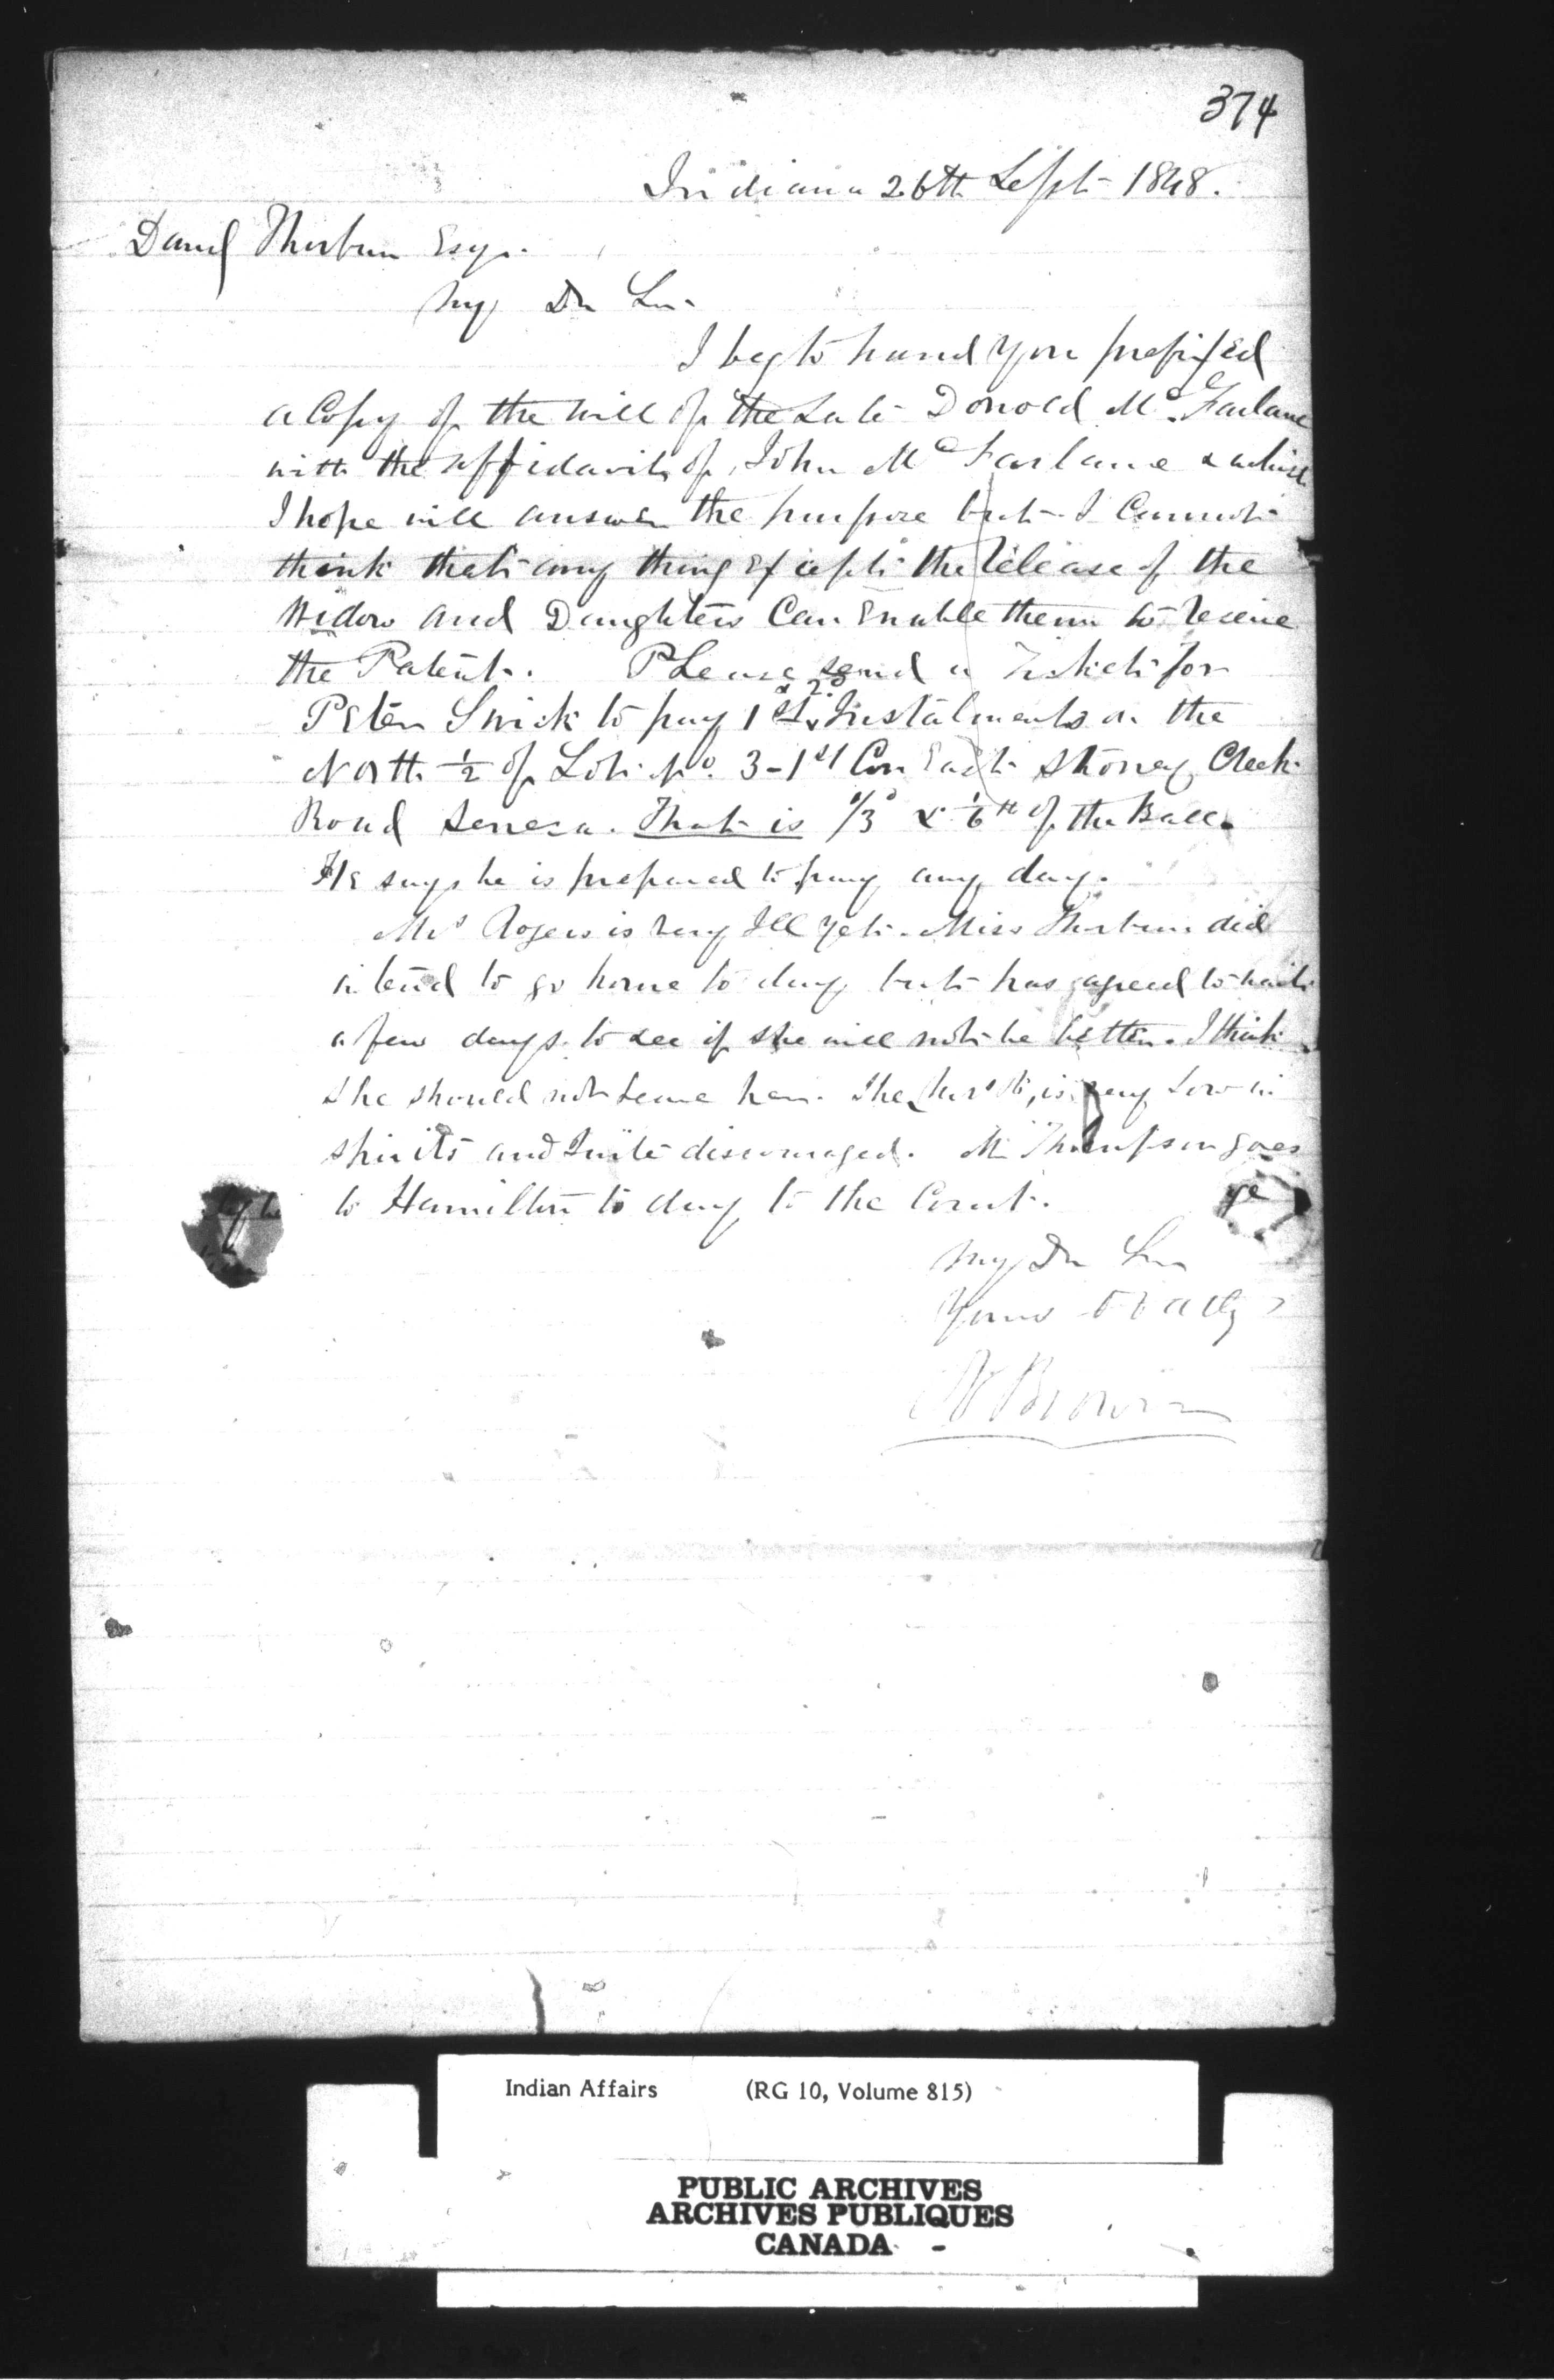 374
Indiana 26th Sept 1848.
David Thorburn Esqr.
My Dr Sir
I beg to hand you prefixed
a Copy of the Will of the Late Donold Mc Farlane
with the affidavit of John Mc Farlane & which
I hope will answer the purpose but I Cannot
think that any thing Except the Release of the
Widow and Daughters Can Enable them to receive
the Patent. PLease send a Ticket for
Peter Swick to pay 1st & 2d Instalments on the
North ½ of Lot No. 3 - 1st Con East Stoney Creek
Road Seneca. That is 1/3d & 1/6th of the Ball.
He says he is prepared to pay any day.
Mrs Rogers is very Ill yet. Miss Thorburn did
intend to go home to day, but has agreed to wait
a few days to see if she will not be better. I think
she should not Leave her. She, Mrs R, is very Low in
spirits and Quite discouraged. Mr Thompson goes
to Hamilton to day to the Court.
ye
My Dr Sir
Yours
Brown
Indian Affairs (RG 10, Volume 815)
PUBLIC ARCHIVES
ARCHIVES PUBLIQUES
CANADA